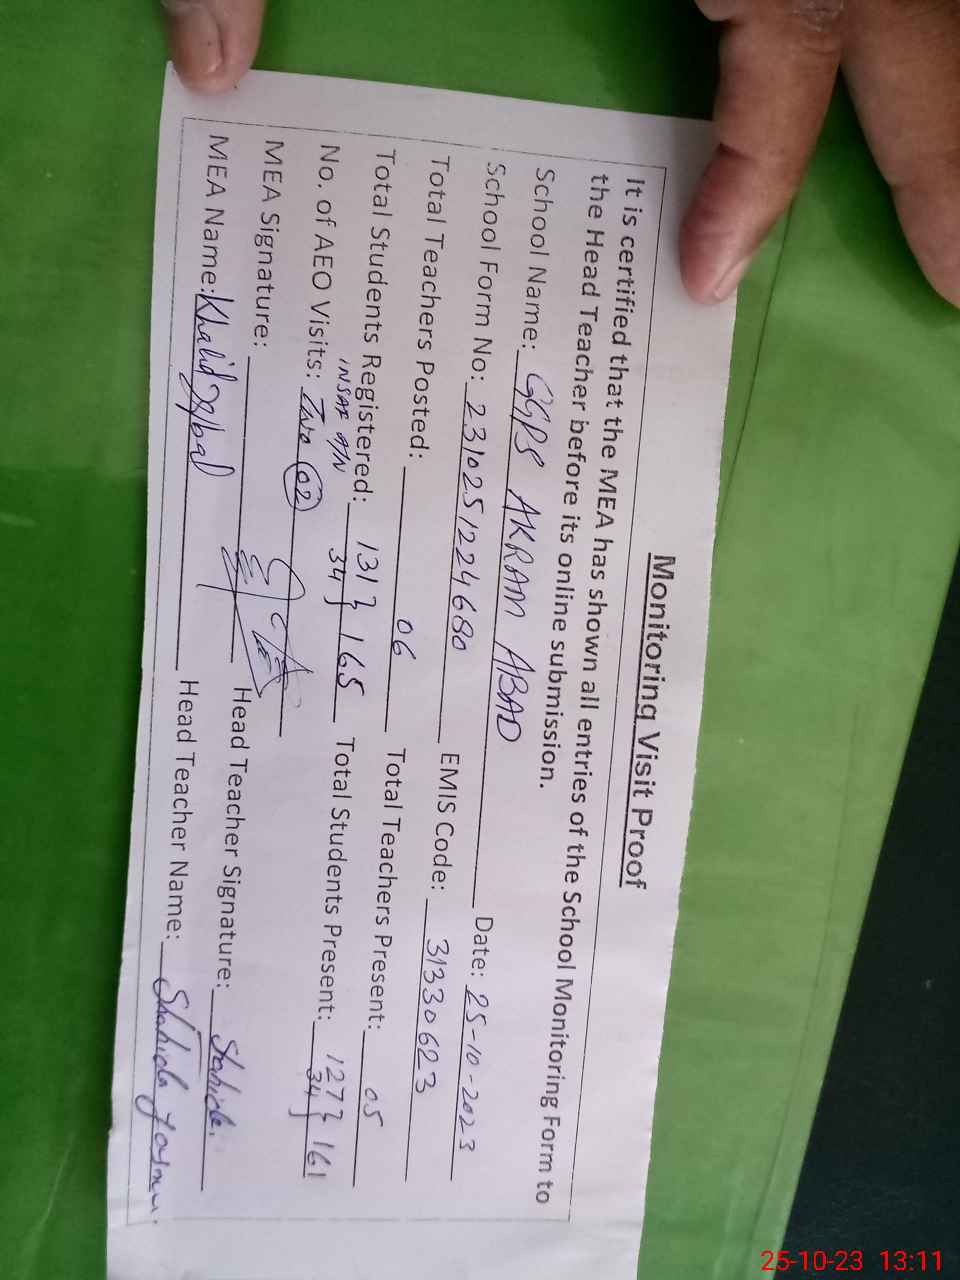 Monitoring Visit Proof
It is certified that the MEA has shown all entries of the School Monitoring Form to
the Head Teacher before its online submission.
School Name: GGPS AKRAM ABAD Date: 25-10-2023
School Form No: 2310251224680 EMIS Code: 31330623
Total Teachers Posted: 06 Total Teachers Present: 05
Total Students Registered: 131} 165 Total Students Present: 127} 161
INSAF A/N 34 34
No. of AEO Visits: Two 02
MEA Signature: Head Teacher Signature: Shahida
MEA Name: Khalid Iqbal Head Teacher Name: Shahida
25-10-23 13:11